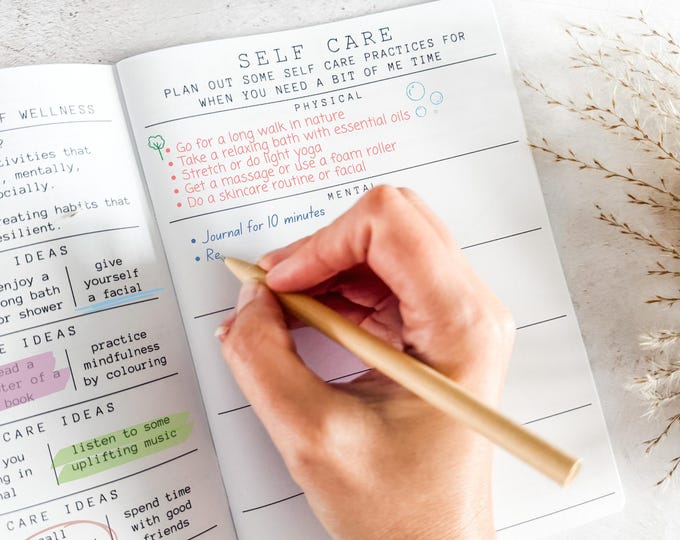 F WELLNESS
?
tivities that
, mentally,
ocially.
reating habits that
esilient.
IDEAS
enjoy a
ong bath
or shower
give
yourself
a facial
E IDEAS
ead a
ter of a
book
practice
mindfulness
by colouring
CARE IDEAS
you
ng in
nal
listen to some
uplifting music
CARE IDEAS
call
spend time
with good
friends
SELF CARE
PLAN OUT SOME SELF CARE PRACTICES FOR
WHEN YOU NEED A BIT OF ME TIME
PHYSICAL
• Go for a long walk in nature
• Take a relaxing bath with essential oils
• Stretch or do light yoga
• Get a massage or use a foam roller
• Do a skincare routine or facial
MENTAL
• Journal for 10 minutes
• Re